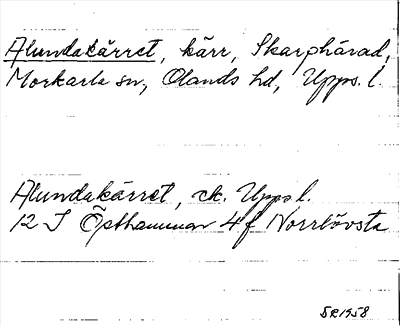 Alundakärret, kärr, Skarphärad,
Morkarla sn, Olands hd, Upps. l.
Alundakärret, ek. Upps l.
12 I Östhammar 4 f Norrlövsta
SR1958